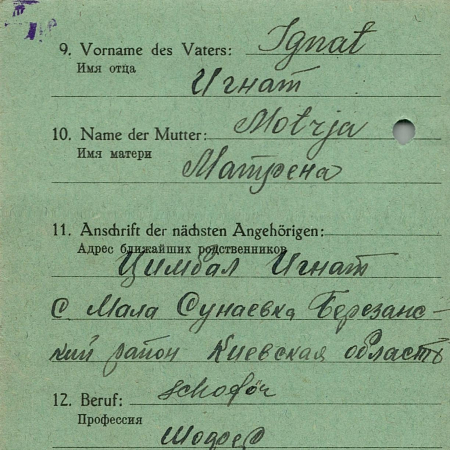 9. Vorname des Vaters: Ignat
Имя отца
Игнат
10. Name der Mutter: Motrja
Имя матери
Матрена
11. Anschrift der nächsten Angehörigen:
Адрес ближайших родственников
Цимбал Игнат
с Мала Сунаевка Березанс-
кий район Киевская область
12. Beruf: schoför
Профессия
Шофер